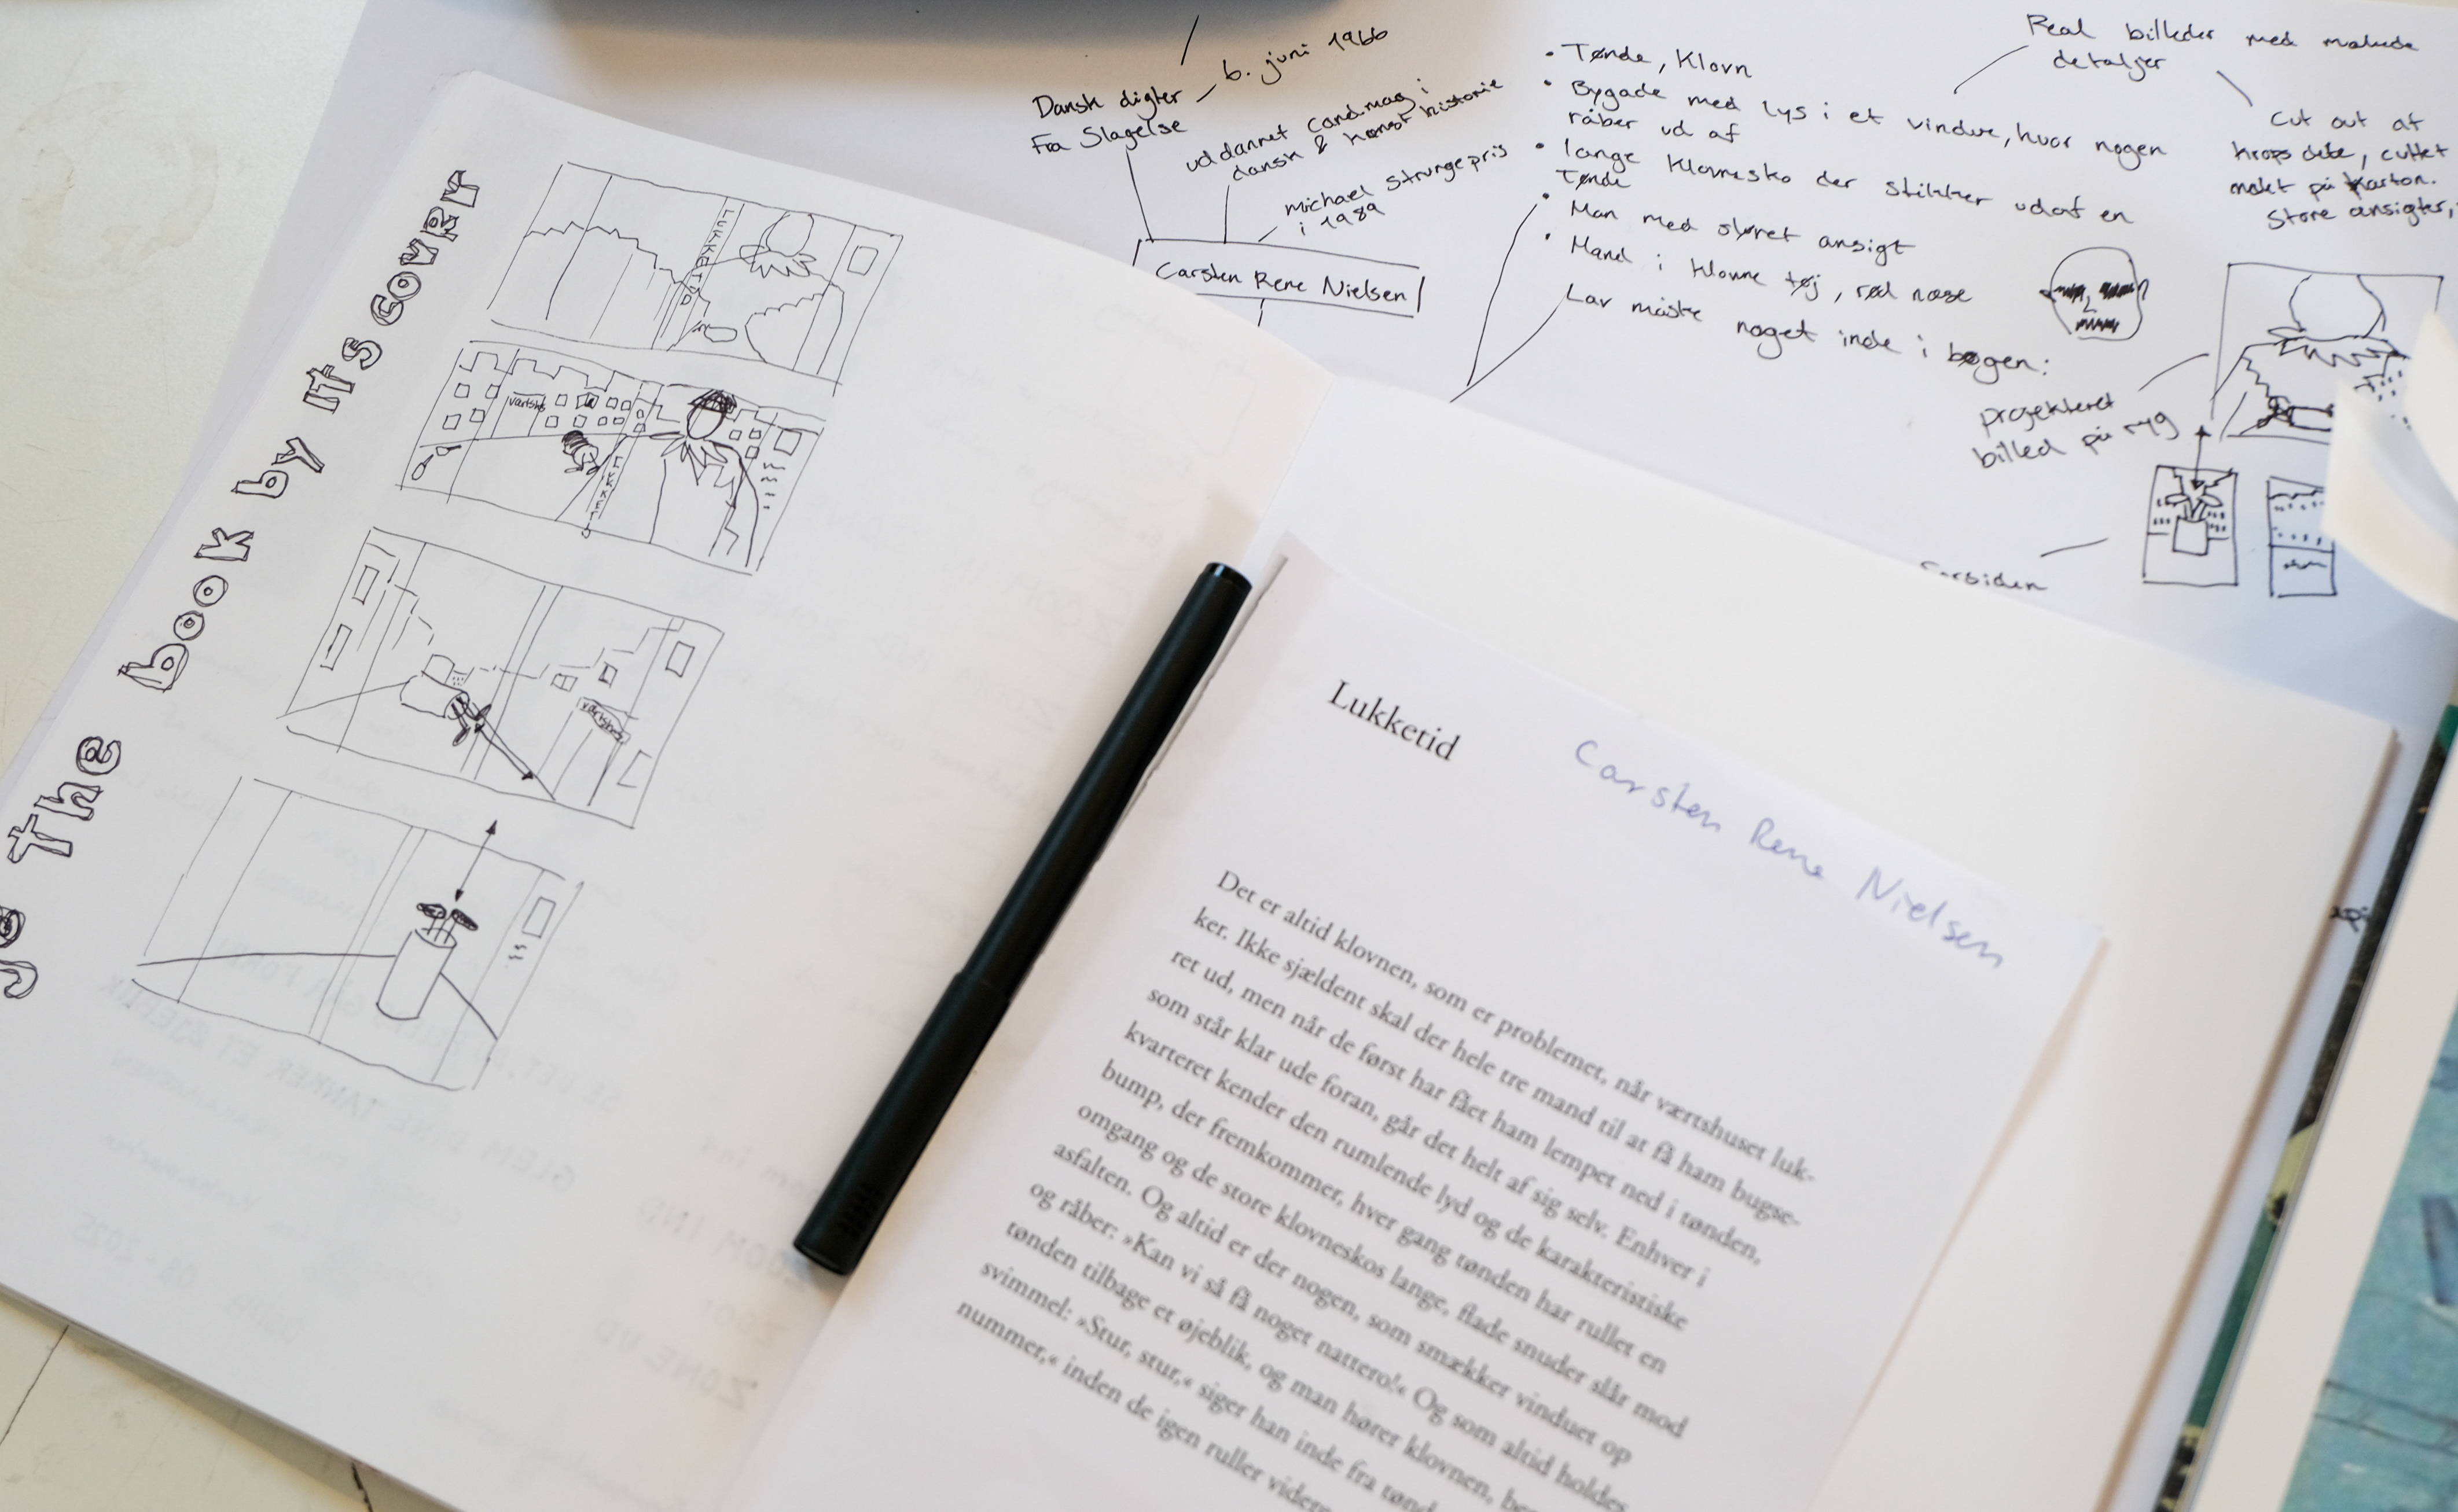 ge the book by its cover
LUKKETID
værtshus
LUKKETID
værtshus
Dansk digter
Fra Slagelse
6. juni 1966
uddannet cand.mag i
dansk & kunst historie
michael strunge pris
i 1989
Carsten Rene Nielsen
• Tønde, Klovn
• Bygade med lys i et vindue, hvor nogen
råber ud af
• lange Klovnesko der stikker ud af en
Tønde
• Man med sløret ansigt
• Mand i Klovne tøj, rød næse
Lav måske noget inde i bøgen:
Real billeder med malede
detaljer
Cut out af
krops dele, cuttet
malet på karton.
Store ansigter,
projekteret
billed på ryg
Forsiden
Lukketid
Carsten Rene Nielsen
Det er altid klovnen, som er problemet, når værtshuset luk-
ker. Ikke sjældent skal der hele tre mand til at få ham bugse-
ret ud, men når de først har fået ham lempet ned i tønden,
som står klar ude foran, går det helt af sig selv. Enhver i
kvarteret kender den rumlende lyd og de karakteristiske
bump, der fremkommer, hver gang tønden har rullet en
omgang og de store klovneskos lange, flade snuder slår mod
asfalten. Og altid er der nogen, som smækker vinduet op
og råber: »Kan vi så få noget nattero!« Og som altid holdes
tønden tilbage et øjeblik, og man hører klovnen,
svimmel: »Stur, stur,« siger han inde fra
nummer,« inden de igen ruller videre